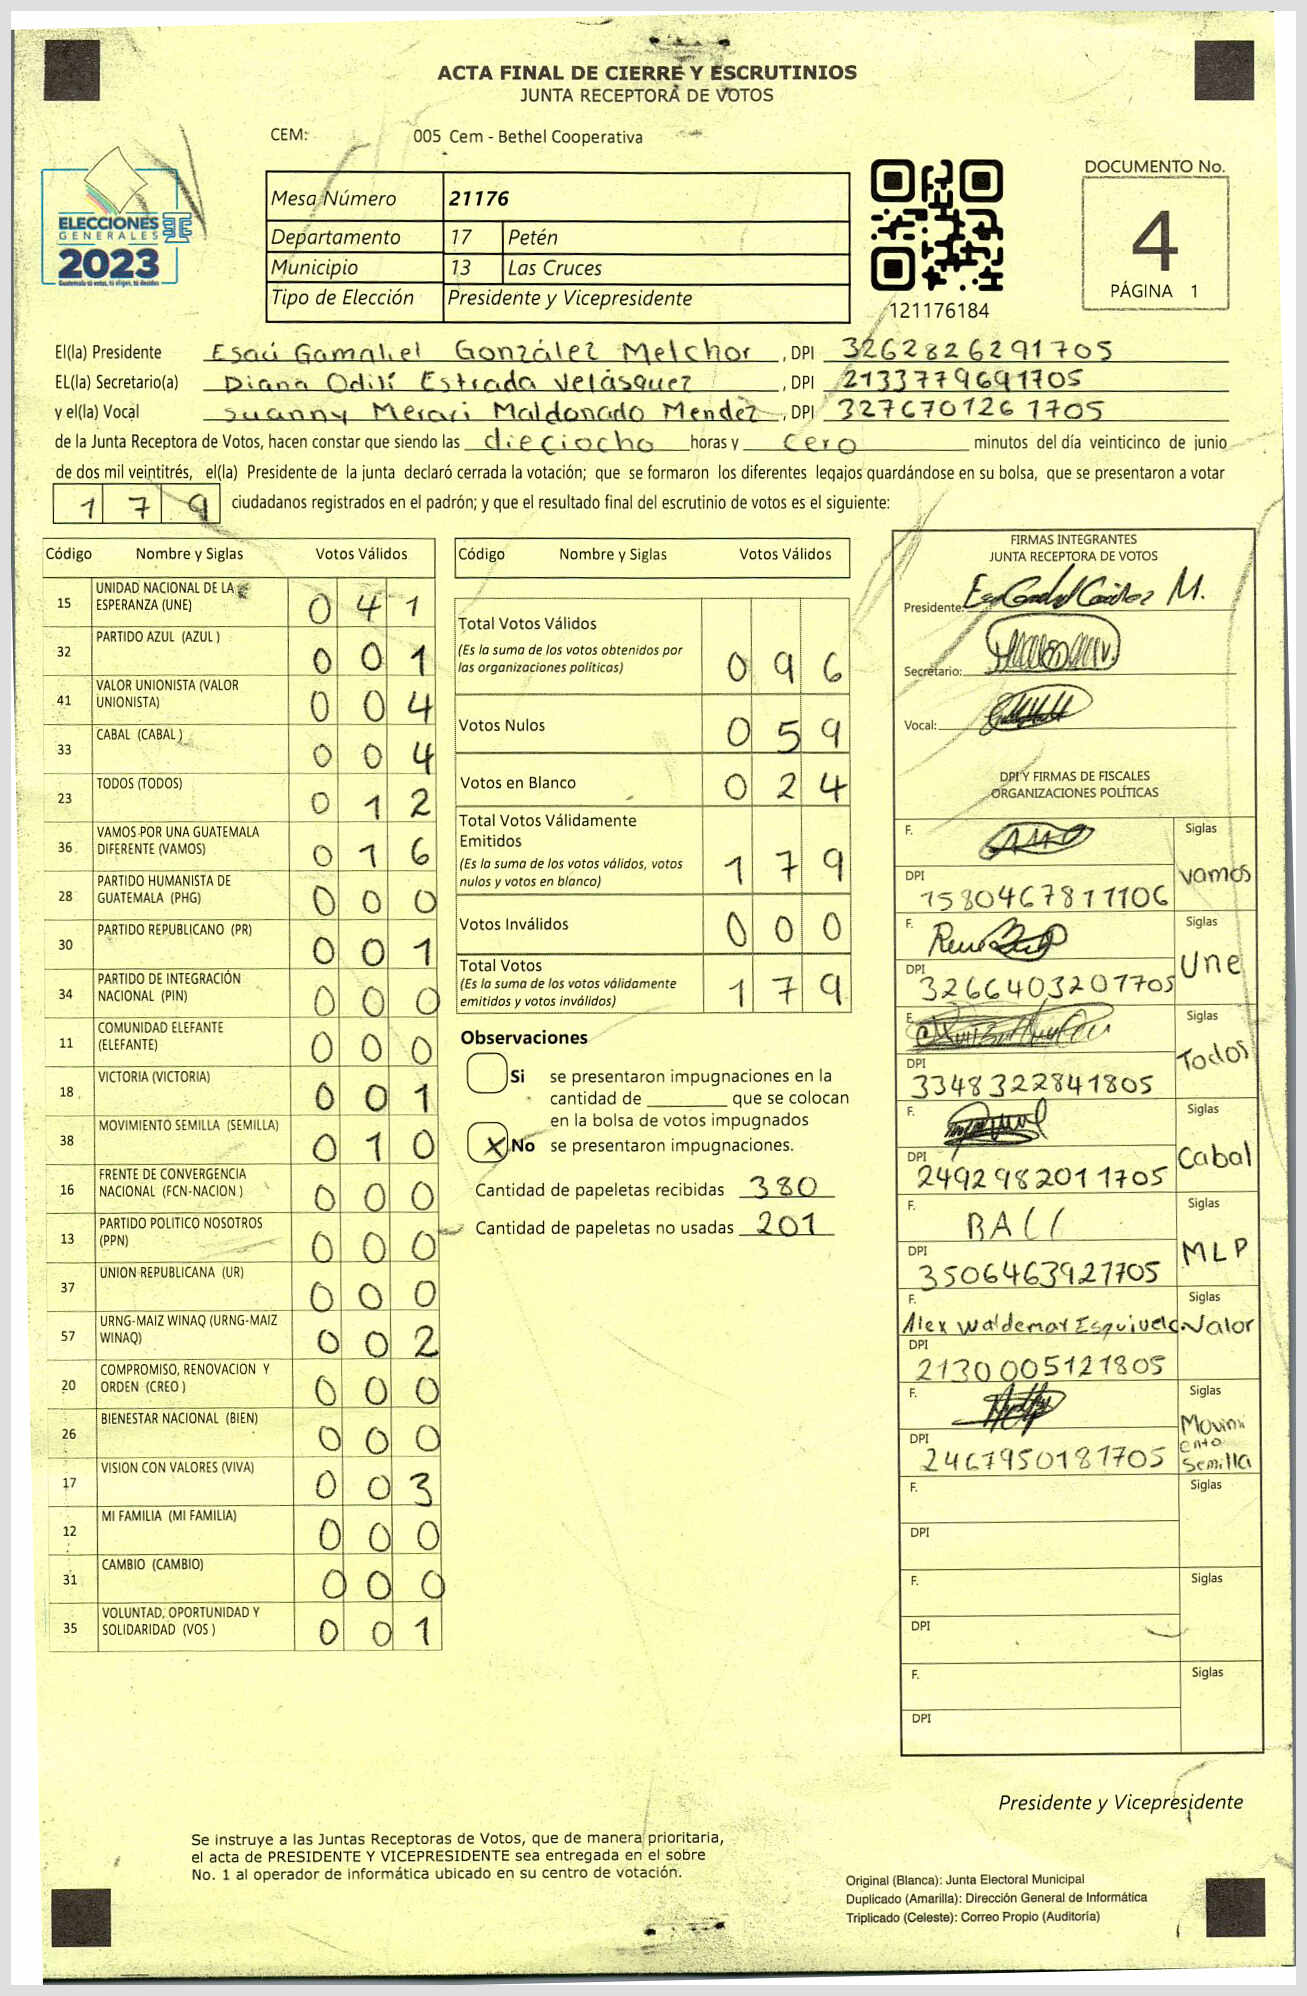 ACTA FINAL DE CIERRE Y ESCRUTINIOS
JUNTA RECEPTORA DE VOTOS
CEM: 005 Cem - Bethel Cooperativa
ELECCIONES
GENERALES
2023
Guatemala tú votas, tú eliges, tú decides
Mesa Número 21176
Departamento 17 Petén
Municipio 13 Las Cruces
Tipo de Elección Presidente y Vicepresidente
121176184
DOCUMENTO No.
4
PÁGINA 1
El(la) Presidente Esaú Gamaliel González Melchor , DPI 3262826291705
EL(la) Secretario(a) Diana Odilí Estrada Velásquez , DPI 2133779691705
y el(la) Vocal Suanny Merari Maldonado Mendez , DPI 3276701261705
de la Junta Receptora de Votos, hacen constar que siendo las dieciocho horas y cero minutos del día veinticinco de junio
de dos mil veintitrés, el(la) Presidente de la junta declaró cerrada la votación; que se formaron los diferentes legajos guardándose en su bolsa, que se presentaron a votar
1 7 9 ciudadanos registrados en el padrón; y que el resultado final del escrutinio de votos es el siguiente:
Código Nombre y Siglas Votos Válidos
15 UNIDAD NACIONAL DE LA ESPERANZA (UNE) 0 4 1
32 PARTIDO AZUL (AZUL ) 0 0 1
41 VALOR UNIONISTA (VALOR UNIONISTA) 0 0 4
33 CABAL (CABAL ) 0 0 4
23 TODOS (TODOS) 0 1 2
36 VAMOS POR UNA GUATEMALA DIFERENTE (VAMOS) 0 1 6
28 PARTIDO HUMANISTA DE GUATEMALA (PHG) 0 0 0
30 PARTIDO REPUBLICANO (PR) 0 0 1
34 PARTIDO DE INTEGRACIÓN NACIONAL (PIN) 0 0 0
11 COMUNIDAD ELEFANTE (ELEFANTE) 0 0 0
18 VICTORIA (VICTORIA) 0 0 1
38 MOVIMIENTO SEMILLA (SEMILLA) 0 1 0
16 FRENTE DE CONVERGENCIA NACIONAL (FCN-NACION ) 0 0 0
13 PARTIDO POLITICO NOSOTROS (PPN) 0 0 0
37 UNION REPUBLICANA (UR) 0 0 0
57 URNG-MAIZ WINAQ (URNG-MAIZ WINAQ) 0 0 2
20 COMPROMISO, RENOVACION Y ORDEN (CREO ) 0 0 0
26 BIENESTAR NACIONAL (BIEN) 0 0 0
17 VISION CON VALORES (VIVA) 0 0 3
12 MI FAMILIA (MI FAMILIA) 0 0 0
31 CAMBIO (CAMBIO) 0 0 0
35 VOLUNTAD, OPORTUNIDAD Y SOLIDARIDAD (VOS ) 0 0 1
Código Nombre y Siglas Votos Válidos
Total Votos Válidos
(Es la suma de los votos obtenidos por
las organizaciones políticas) 0 9 6
Votos Nulos 0 5 9
Votos en Blanco 0 2 4
Total Votos Válidamente
Emitidos
(Es la suma de los votos válidos, votos
nulos y votos en blanco) 1 7 9
Votos Inválidos 0 0 0
Total Votos
(Es la suma de los votos válidamente
emitidos y votos inválidos) 1 7 9
Observaciones
Si se presentaron impugnaciones en la
cantidad de ________ que se colocan
en la bolsa de votos impugnados
X No se presentaron impugnaciones.
Cantidad de papeletas recibidas 380
Cantidad de papeletas no usadas 201
FIRMAS INTEGRANTES
JUNTA RECEPTORA DE VOTOS
Presidente:
Secretario:
Vocal:
DPI Y FIRMAS DE FISCALES
ORGANIZACIONES POLÍTICAS
F. Siglas
Vamos
DPI
1580467811106
F. Siglas
Une
DPI
3266403201705
F. Siglas
Todos
DPI
3348322841805
F. Siglas
Cabal
DPI
2492982011705
F. Siglas
MLP
DPI
3506463921705
F. Alex Waldemar Esquivel Siglas
Valor
DPI
2130005121805
F. Siglas
Movimi
ento
Semilla
DPI
2467950181705
F. Siglas
DPI
F. Siglas
DPI
F. Siglas
DPI
Presidente y Vicepresidente
Se instruye a las Juntas Receptoras de Votos, que de manera prioritaria,
el acta de PRESIDENTE Y VICEPRESIDENTE sea entregada en el sobre
No. 1 al operador de informática ubicado en su centro de votación.
Original (Blanca): Junta Electoral Municipal
Duplicado (Amarilla): Dirección General de Informática
Triplicado (Celeste): Correo Propio (Auditoría)